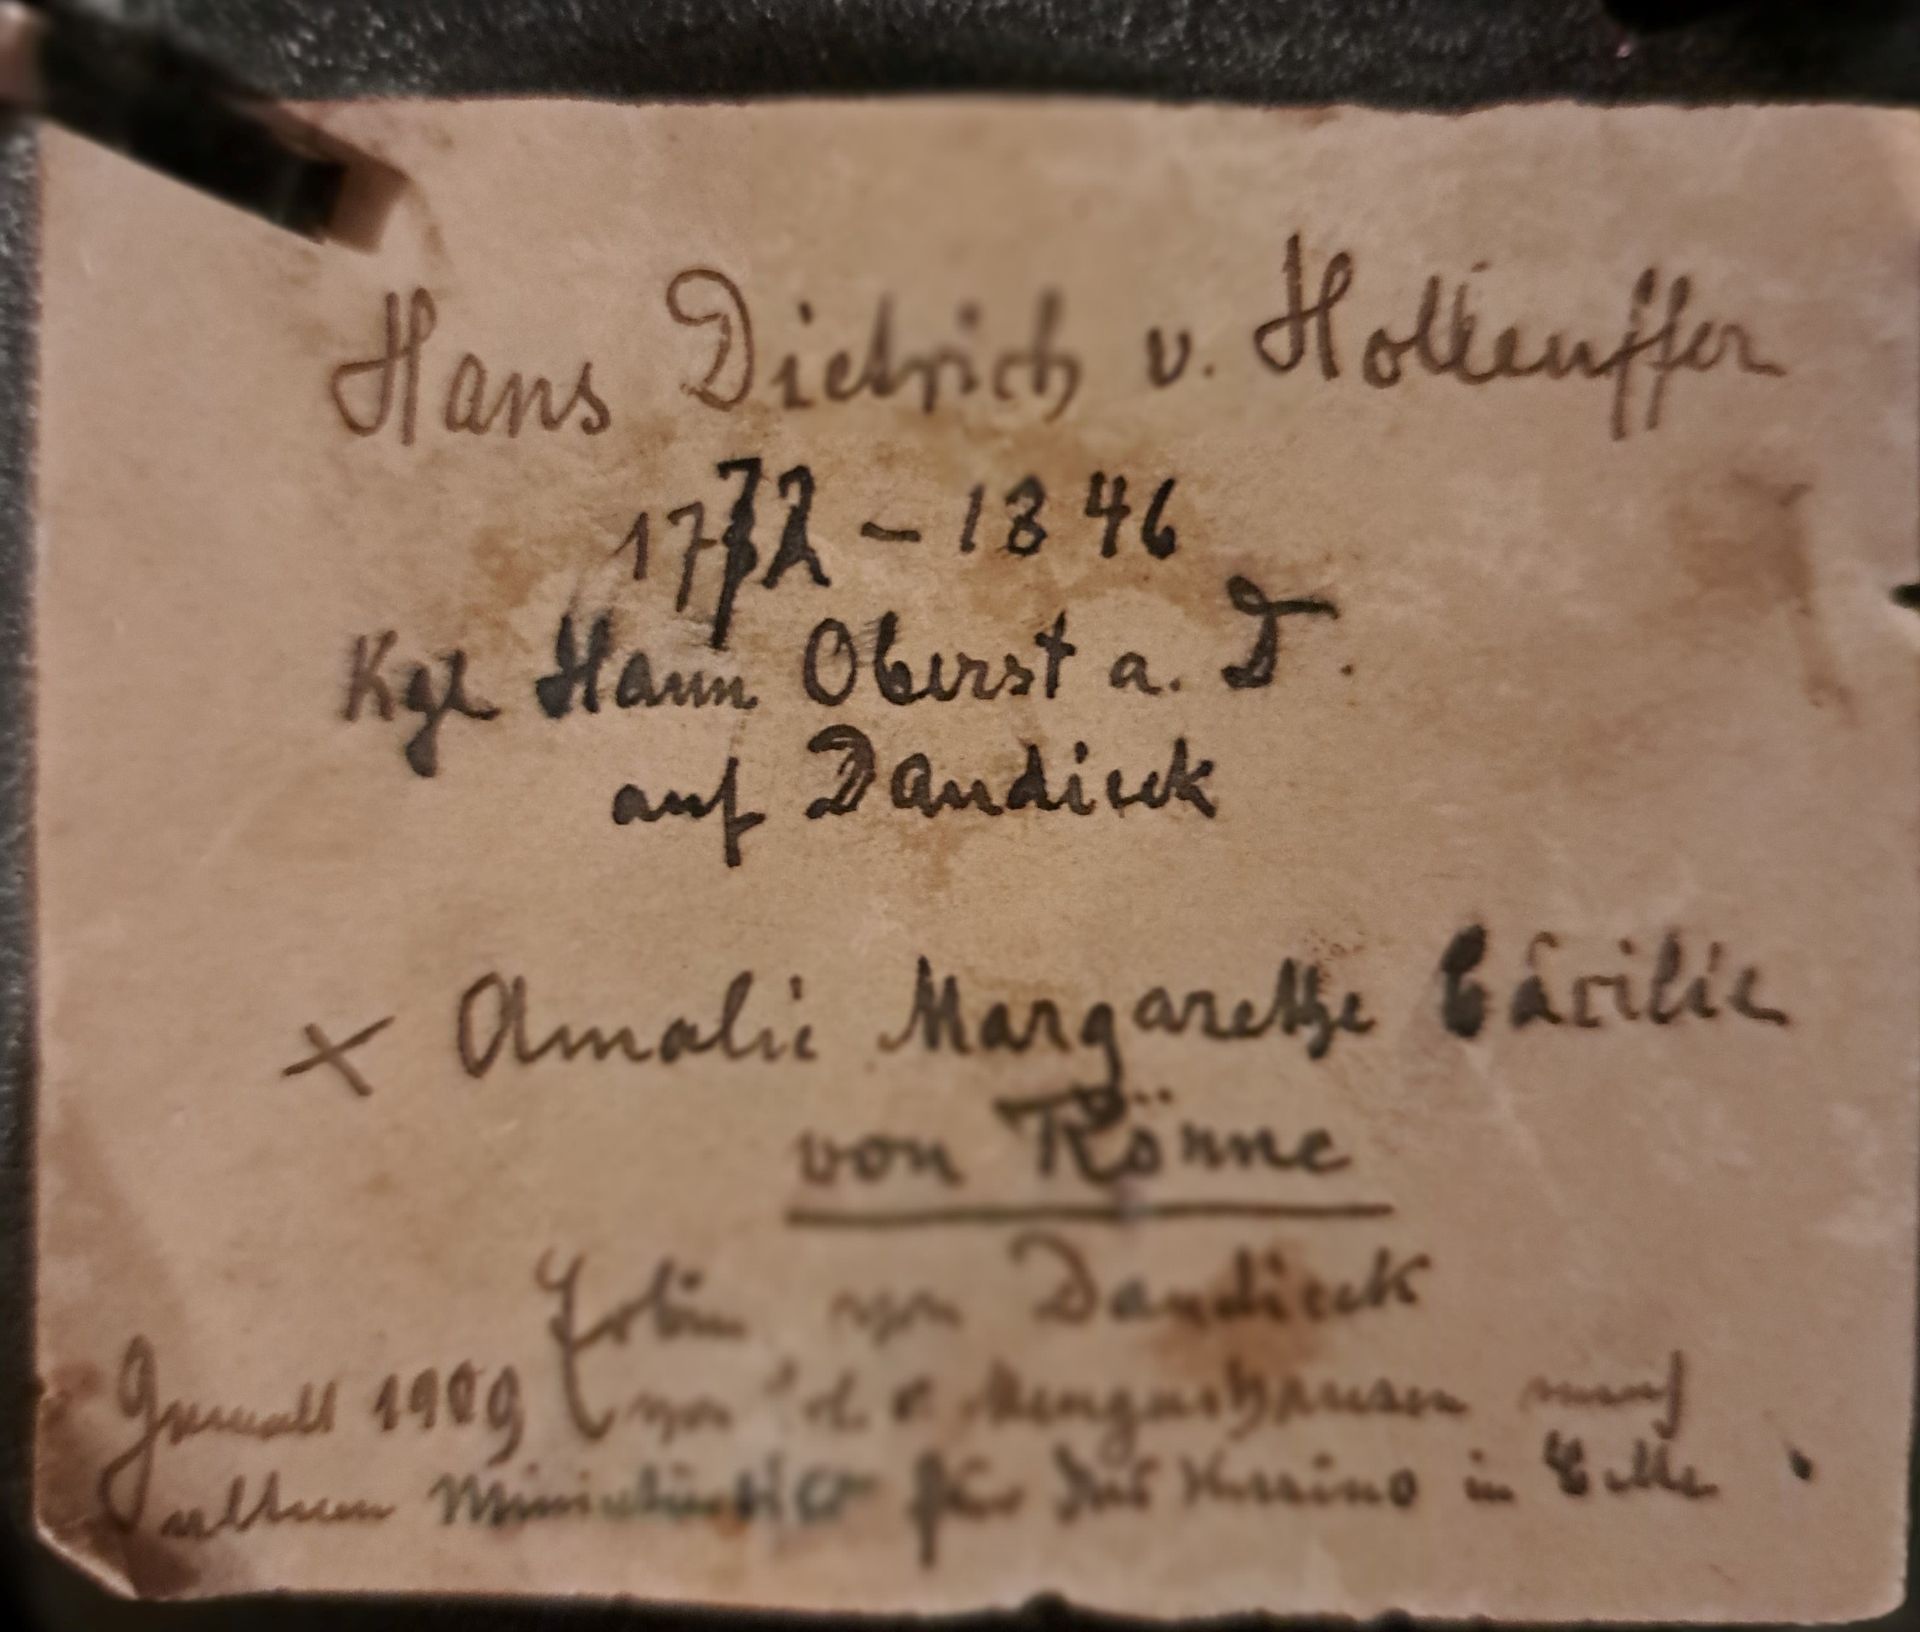 Hans Dietrich v. Holleuffer
1772 - 1846
Kgl Hann Oberst a. D.
auf Dandieck
x Amalie Margarethe Cäcilie
von Rönne
Erbin von Dandieck
Gemalt 1909 von v. Mengershausen nach
altem Miniaturbild für das Kasino in Celle